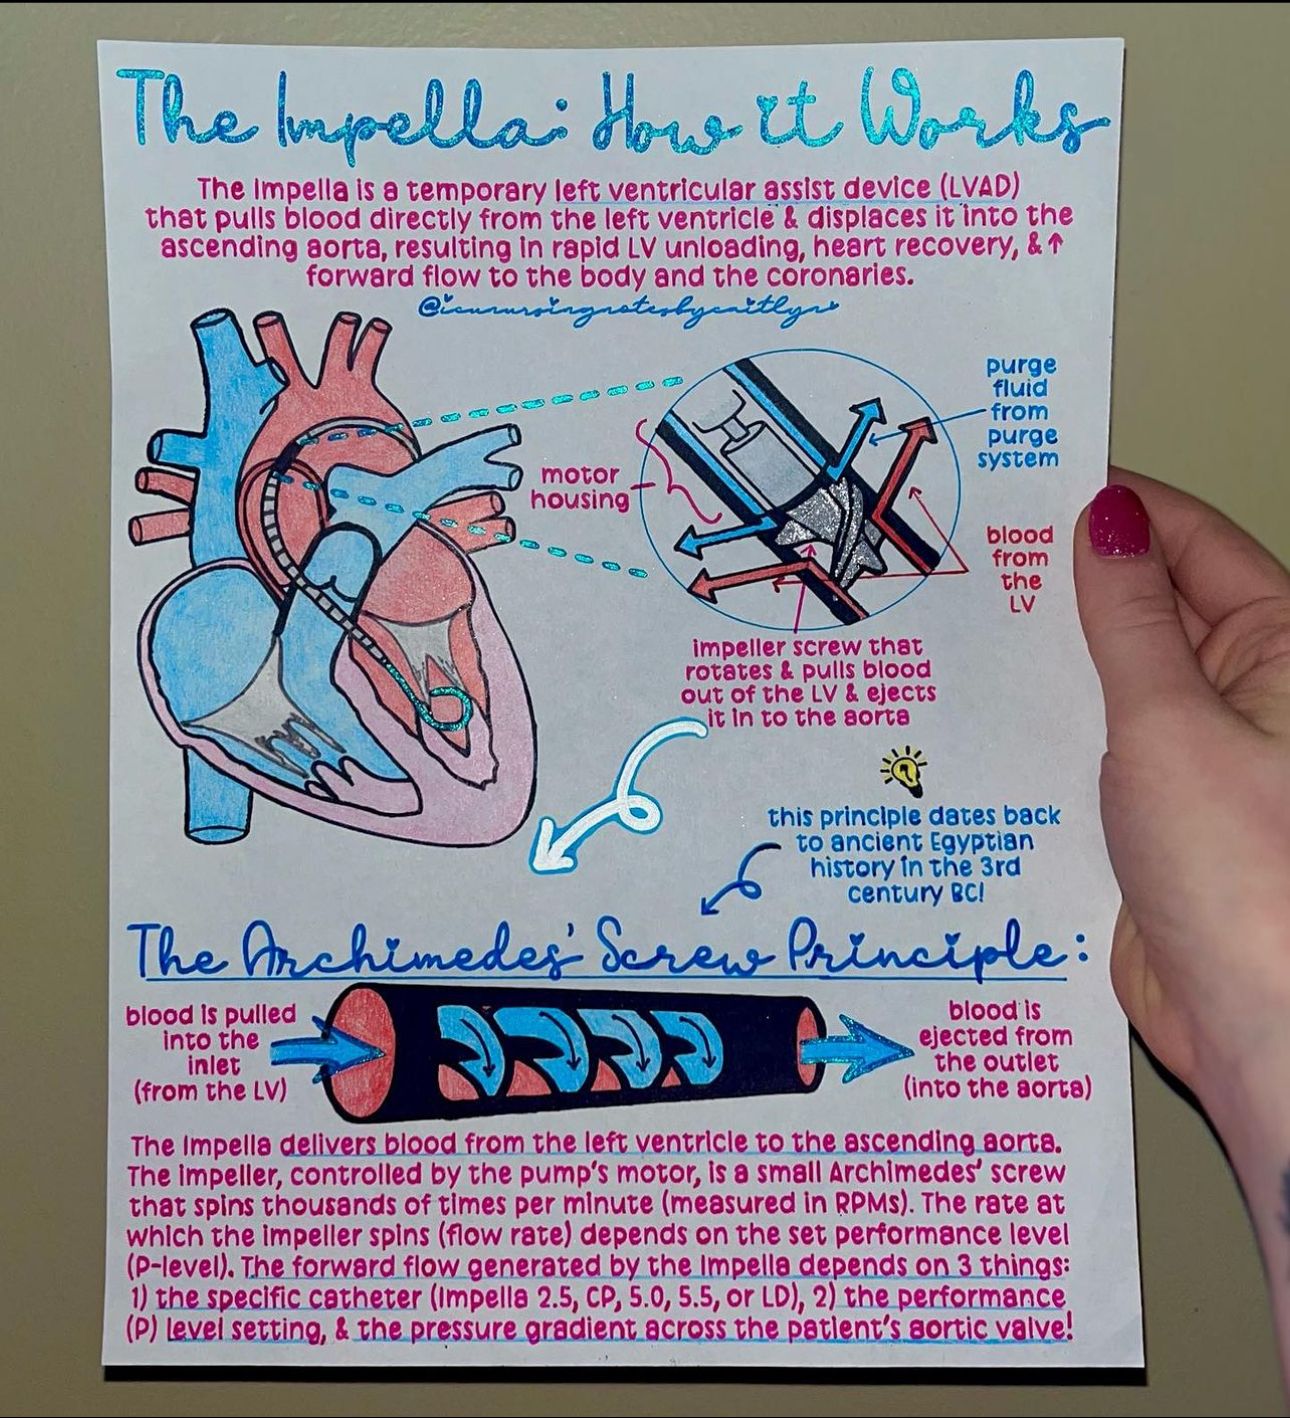 The Impella: How it Works
The Impella is a temporary left ventricular assist device (LVAD)
that pulls blood directly from the left ventricle & displaces it into the
ascending aorta, resulting in rapid LV unloading, heart recovery, & ↑
forward flow to the body and the coronaries.
@icunursingnotesbycaitlyn
purge
fluid
from
purge
system
motor
housing
blood
from
the
LV
impeller screw that
rotates & pulls blood
out of the LV & ejects
it in to the aorta
this principle dates back
to ancient Egyptian
history in the 3rd
century BC!
The Archimedes' Screw Principle:
blood is pulled
into the
inlet
(from the LV)
blood is
ejected from
the outlet
(into the aorta)
The Impella delivers blood from the left ventricle to the ascending aorta.
The impeller, controlled by the pump's motor, is a small Archimedes' screw
that spins thousands of times per minute (measured in RPMs). The rate at
which the impeller spins (flow rate) depends on the set performance level
(P-level). The forward flow generated by the Impella depends on 3 things:
1) the specific catheter (Impella 2.5, CP, 5.0, 5.5, or LD), 2) the performance
(P) level setting, & the pressure gradient across the patient's aortic valve!